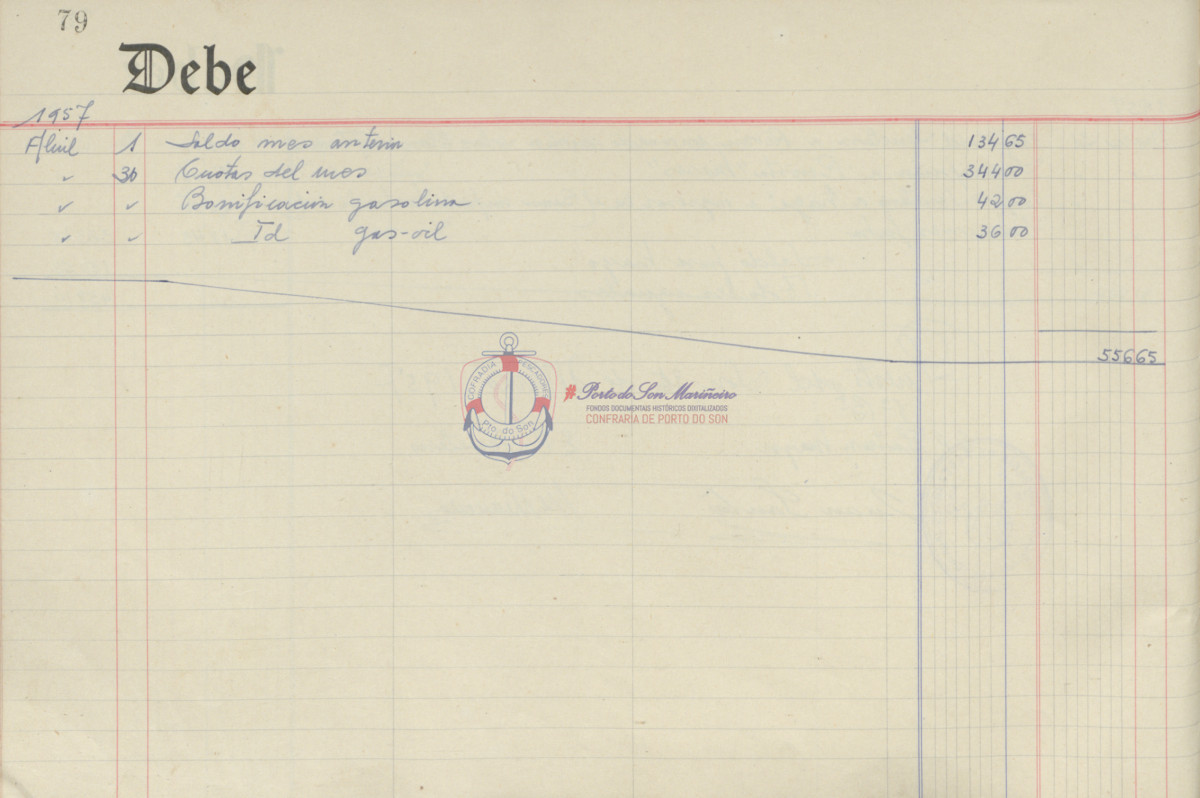 79
Debe
1957
Abril 1 Saldo mes anterior 134 65
" 30 Cuotas del mes 344 00
" " Bonificación gasolina 42 00
" " Id gas-oil 36 00
556 65
COFRADIA PESCADORES
Pto. do Son
# Porto do Son Mariñeiro
FONDOS DOCUMENTAIS HISTÓRICOS DIXITALIZADOS
CONFRARÍA DE PORTO DO SON